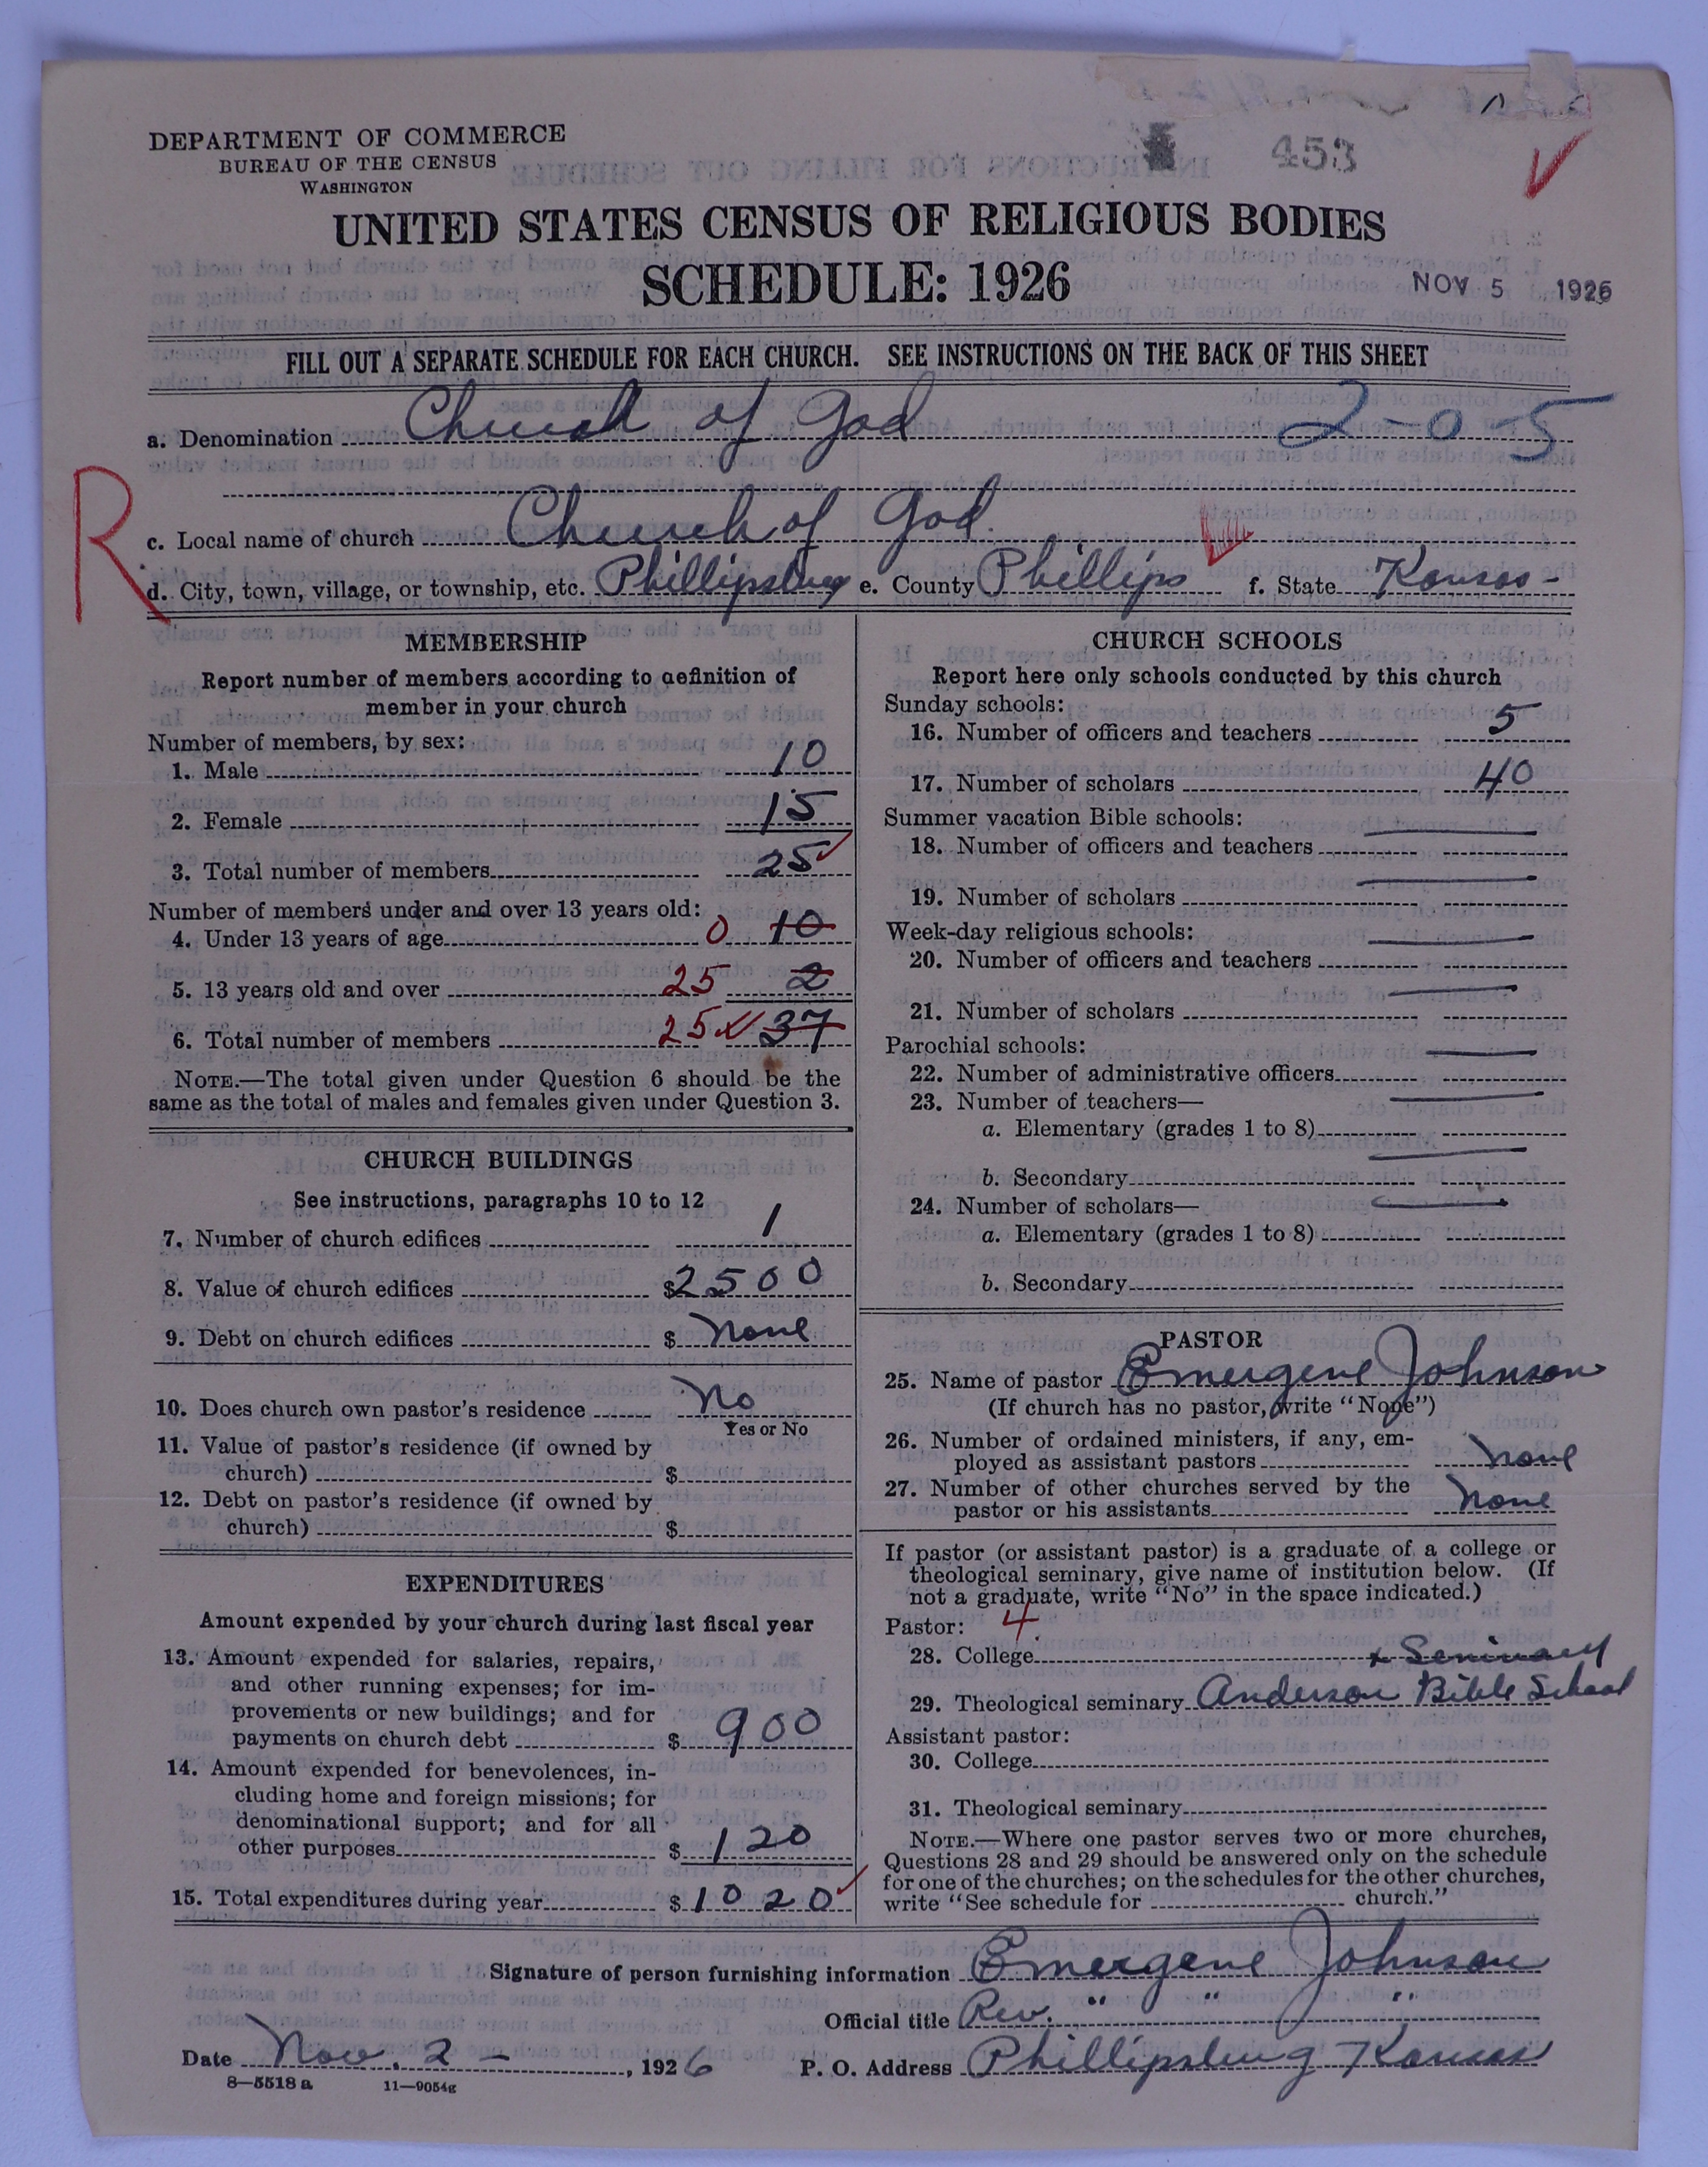 DEPARTMENT OF COMMERCE
BUREAU OF THE CENSUS
WASHINGTON
453
UNITED STATES CENSUS OF RELIGIOUS BODIES
SCHEDULE: 1926
NOV 5 1926
FILL OUT A SEPARATE SCHEDULE FOR EACH CHURCH. SEE INSTRUCTIONS ON THE BACK OF THIS SHEET
a. Denomination Church of God 2-0-5
R
c. Local name of church Church of God.
d. City, town, village, or township, etc. Phillipsburg e. County Phillips f. State Kansas -
MEMBERSHIP
Report number of members according to definition of
member in your church
Number of members, by sex:
1. Male 10
2. Female 15
3. Total number of members 25
Number of members under and over 13 years old:
4. Under 13 years of age 0 10
5. 13 years old and over 25 2
6. Total number of members 25 37
NOTE.—The total given under Question 6 should be the
same as the total of males and females given under Question 3.
CHURCH BUILDINGS
See instructions, paragraphs 10 to 12
7. Number of church edifices 1
8. Value of church edifices $2500
9. Debt on church edifices $ none
10. Does church own pastor's residence No
Yes or No
11. Value of pastor's residence (if owned by
church) $
12. Debt on pastor's residence (if owned by
church) $
EXPENDITURES
Amount expended by your church during last fiscal year
13. Amount expended for salaries, repairs,
and other running expenses; for im-
provements or new buildings; and for
payments on church debt $ 900
14. Amount expended for benevolences, in-
cluding home and foreign missions; for
denominational support; and for all
other purposes $ 120
15. Total expenditures during year $ 1020
CHURCH SCHOOLS
Report here only schools conducted by this church
Sunday schools:
16. Number of officers and teachers 5
17. Number of scholars 40
Summer vacation Bible schools:
18. Number of officers and teachers
19. Number of scholars
Week-day religious schools:
20. Number of officers and teachers
21. Number of scholars
Parochial schools:
22. Number of administrative officers
23. Number of teachers—
a. Elementary (grades 1 to 8)
b. Secondary
24. Number of scholars—
a. Elementary (grades 1 to 8)
b. Secondary
PASTOR
25. Name of pastor Emergene Johnson
(If church has no pastor, write "None")
26. Number of ordained ministers, if any, em-
ployed as assistant pastors none
27. Number of other churches served by the
pastor or his assistants none
If pastor (or assistant pastor) is a graduate of a college or
theological seminary, give name of institution below. (If
not a graduate, write "No" in the space indicated.)
Pastor: 4
28. College + Seminary
29. Theological seminary Anderson Bible School
Assistant pastor:
30. College
31. Theological seminary
NOTE.—Where one pastor serves two or more churches,
Questions 28 and 29 should be answered only on the schedule
for one of the churches; on the schedules for the other churches,
write "See schedule for church."
Signature of person furnishing information Emergene Johnson
Official title Rev. " " "
Date Nov. 2 - , 1926 P. O. Address Phillipsburg Kansas
8—5518 a 11—9054g